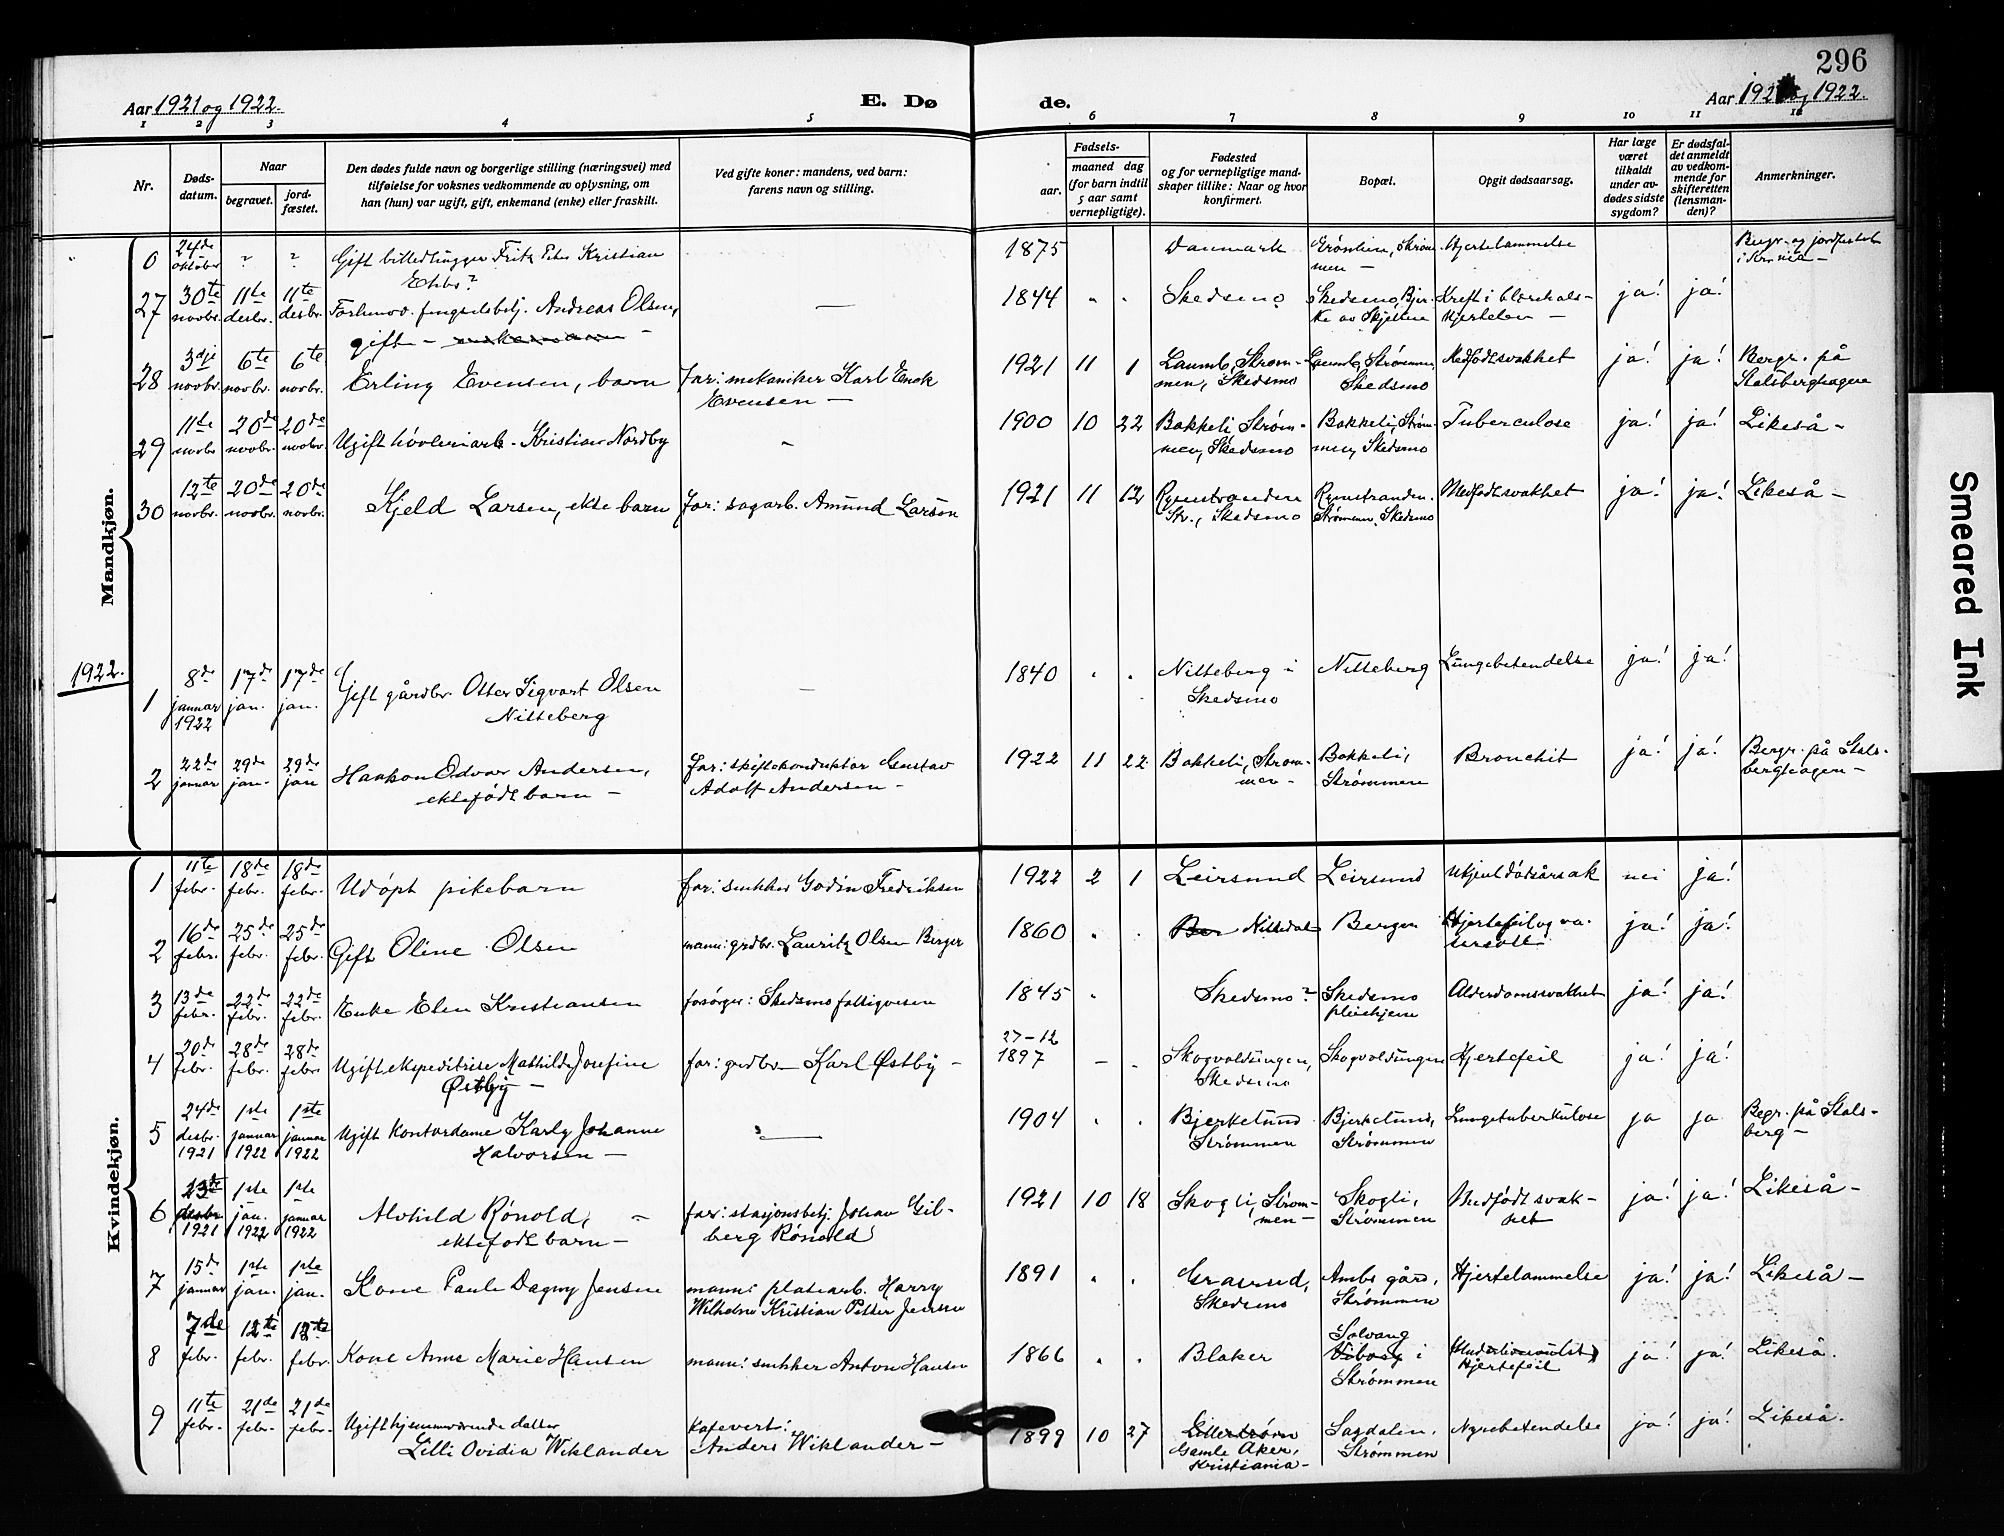 296
Aar 1921 og 1922.
E. Dø
de.
Aar 1921 og 1922.
1 2 3 4 5 6 7 8 9 10 11 12
Nr.
Døds-
datum.
Naar
begravet.
jord-
fæstet.
Den dødes fulde navn og borgerlige stilling (næringsvei) med
tilføielse for voksnes vedkommende av oplysning, om
han (hun) var ugift, gift, enkemand (enke) eller fraskilt.
Ved gifte koner: mandens, ved barn:
farens navn og stilling.
Fødsels-
aar.
maaned dag
(for barn indtil
5 aar samt
vernepligtige).
Fødested
og for vernepligtige mand-
skaper tillike: Naar og hvor
konfirmert.
Bopæl.
Opgit dødsaarsag.
Har læge
været
tilkaldt
under av-
dødes sidste
sygdom?
Er dødsfal-
det anmeldt
av vedkom-
mende for
skifteretten
(lensman-
den)?
Anmerkninger.
Mandkjøn.
0 24de oktober ? ? Gift billedhugger Fritz Peter Kristian
1875 Danmark Strøm-
men — Hjertelammelse Begr. og jordfestet
i
27 30te novbr. 11te desbr. 11te desbr. Forhenv. fengselsbetj. Andreas Olsen,
gift —
— 1844 " " Skedsmo Skedsmo, Bjer-
ke av Skjetten Kreft i blærehals-
kjertelen — ja! ja!
28 3dje novbr. 6te novbr. 6te novbr. Erling Evensen, barn far: mekaniker Karl Enok
Evensen —
1921 11 1 Strøm-
men, Skedsmo Strømmen,
Skedsmo Medfødt svakhet ja! ja! Begr. på
Stalsberghagen
29 11te novbr. 20de novbr. 20de novbr. Ugift høvleriarb. Kristian Nordby
- 1900 10 22 Bakkeli Strøm-
men, Skedsmo Bakkeli, Strøm-
men, Skedsmo Tuberculose ja! ja! Likeså —
30 12te novbr. 20de novbr. 20de novbr. Kjeld Larsen, ekte barn far: sagarb. Amund Larsen
1921 11 12 Rynstranden
Str., Skedsmo Rynstranden.
Strømmen, Skedsmo Medfødt svakhet ja! ja! Likeså —
1922.
1 8de januar 1922 17de jan. 17de jan. Gift gårdbr. Otter Sigvart Olsen
Nitteberg
- 1840 " " Nitteberg i
Skedsmo Nitteberg Lungebetendelse ja! ja!
2 22de januar 29de jan. 29de jan Haakon Edvar Andersen,
ektefødt barn —
far: skiftekonduktør Gustav
Adolf Andersen —
1922 11 22 Bakkeli, Strøm-
men — Bakkeli,
Strømmen Bronchit ja! ja! Begr. på Stals-
berghagen —
Kvindekjøn.
1 11te febr. 18de febr. 18de febr. Udøpt pikebarn far: snekker Godin Fredriksen
1922 2 1 Leirsund Leirsund Ukjent dødsårsak nei ja!
2 16de febr. 25de febr. 25de febr. Gift Oline Olsen mann: grdbr. Lauritz Olsen Berger
1860 " " Ber Nittedal Berger Hjertefeil og va-
tersott ja! ja!
3 13de febr. 22de febr. 22de febr. Enke Elen Kristiansen forsørger: Skedsmo fattigvesen
1845 " Skedsmo? Skedsmo
pleiehjem Alderdomssvakhet ja! ja!
4 20de febr. 28de febr. 28de febr. Ugift ekspeditrise Mathilde Josefine
Østby —
far: grdbr — Karl Østby —
27-12
1897 — " Skogvoldsingen,
Skedsmo Skogvoldsingen Hjertefeil ja! ja!
5 24de desbr. 1921 1ste januar 1922 1ste januar 1922 Ugift kontordame Karly Johanne
Halvorsen —
— 1904 " " Bjerkelund
Strømmen Bjerkelund,
Strømmen Lungetuberkulose ja ja Begr. på Stals-
berg —
6 23de desbr 1921 1ste jan. 1922 1ste januar 1922 Alvhild Rønold, —
ektefødt barn —
far: stasjonsbetj. Johan Gil-
berg Rønold
1921 10 18 Skogli, Strøm-
men — Skogli,
Strømmen Medfødt svak-
het ja! ja! Likeså —
7 15de januar 1ste jan. 1ste jan. Kone Paule Dagny Jensen mann: platearb. Harry
Wilhelm Kristian Petter Jensen
1891 " " Grasrud,
Skedsmo Ambs gård,
Strømmen Hjertelammelse ja! ja! Likeså —
8 7de febr. 12te febr. 12te febr. Kone Anne Marie Hansen mann: snekker Anton Hansen
1866 " " Blaker Solvang
Viborg i
Strømmen
Hjertefeil ja! ja! Likeså.
9 11te febr. 21de febr. 21de febr. Ugift hjemmeværende datter
Lilli Ovidia Wiklander
kafevert:
Anders Wiklander —
1899 10 27 Lillestrøm
Gamle Aker,
Kristiania — Sagdalen,
Strømmen Nyrebetendelse ja! ja! Likeså.
Smeared Ink